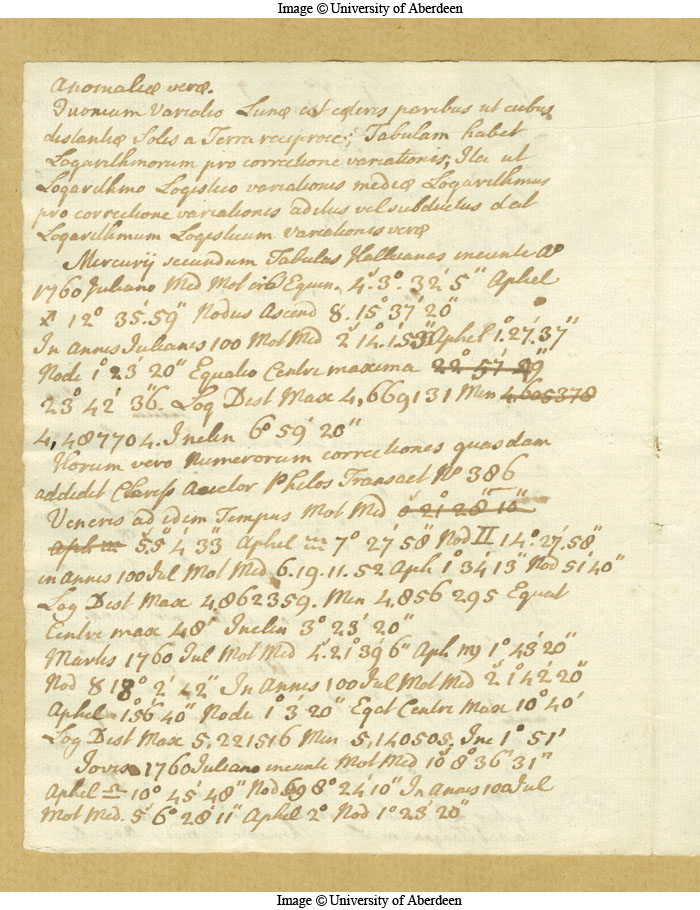 Image © University of Aberdeen
Anomaliæ veræ.
Quoniam Variatio Lunæ est cæteris paribus ut cubus
distantiæ Solis a Terra reciproce; Tabulam habet
Logarithmorum pro correctione variationis, Ita ut
Logarithmo Logistico variationis mediæ Logarithmus
pro correctione variationis aditus vel subductus dat
Logarithmum Logisticum Variationis veræ
Mercurij secundum Tabulas Halleianas ineunte Aº
1760 Juliano Med Mot Equin. 4ˢ. 3°. 32' 5" Aphel
♐ 12° 35'. 59" Nodus Ascend 8. 15° 37' 20"
In Annis Julianis 100 Mot Med 2ˢ 14°. 1'. 53" Aphel 1°. 27'. 37"
Node 1° 23' 20" Equatio Centri maxima 22° 57' 29"
23° 42' 36". Log Dist Max 4,669131 Min 4.605378
4,487704. Inclin 6° 59' 20"
Horum vero Numerorum correctiones quasdam
addidit Clariss Auctor Philos Transact Nº 386
Veneris ad idem Tempus Mot Med 0ˢ 21° 28' 10"
Aph ♒ 5ˢ 5° 4' 33" Aphel ♒ 7° 27' 58" Nod II 14°. 27'. 58"
in Annis 100 Jul Mot Med 6. 19. 11. 52 Aph 1° 34' 13" Nod 51' 40"
Log Dist Max 4,862359. Min 4,856295 Equat
Centri max 48' Inclin 3° 23' 20"
Martis 1760 Jul Mot Med 4ˢ. 21° 39' 6" Aph ♍ 1° 43' 20"
Nod ♉ 18° 2' 42" In Annis 100 Jul Mot Med 2ˢ 1° 42' 20"
Aphel 1° 56' 40" Node 1° 3' 20" Eqat Centri Max 10° 40'
Log Dist Max 5,221516 Min 5,140505, Inc 1° 51'
Jovis 1760 Juliano ineunte Mot Med 10ˢ 8° 36' 31"
Aphel ♎ 10° 45' 48" Nod ♋ 8° 24' 10" In Annis 100 Jul
Mot Med. 5ˢ 6° 28' 11" Aphel 2° Nod 1° 23' 20"
Image © University of Aberdeen